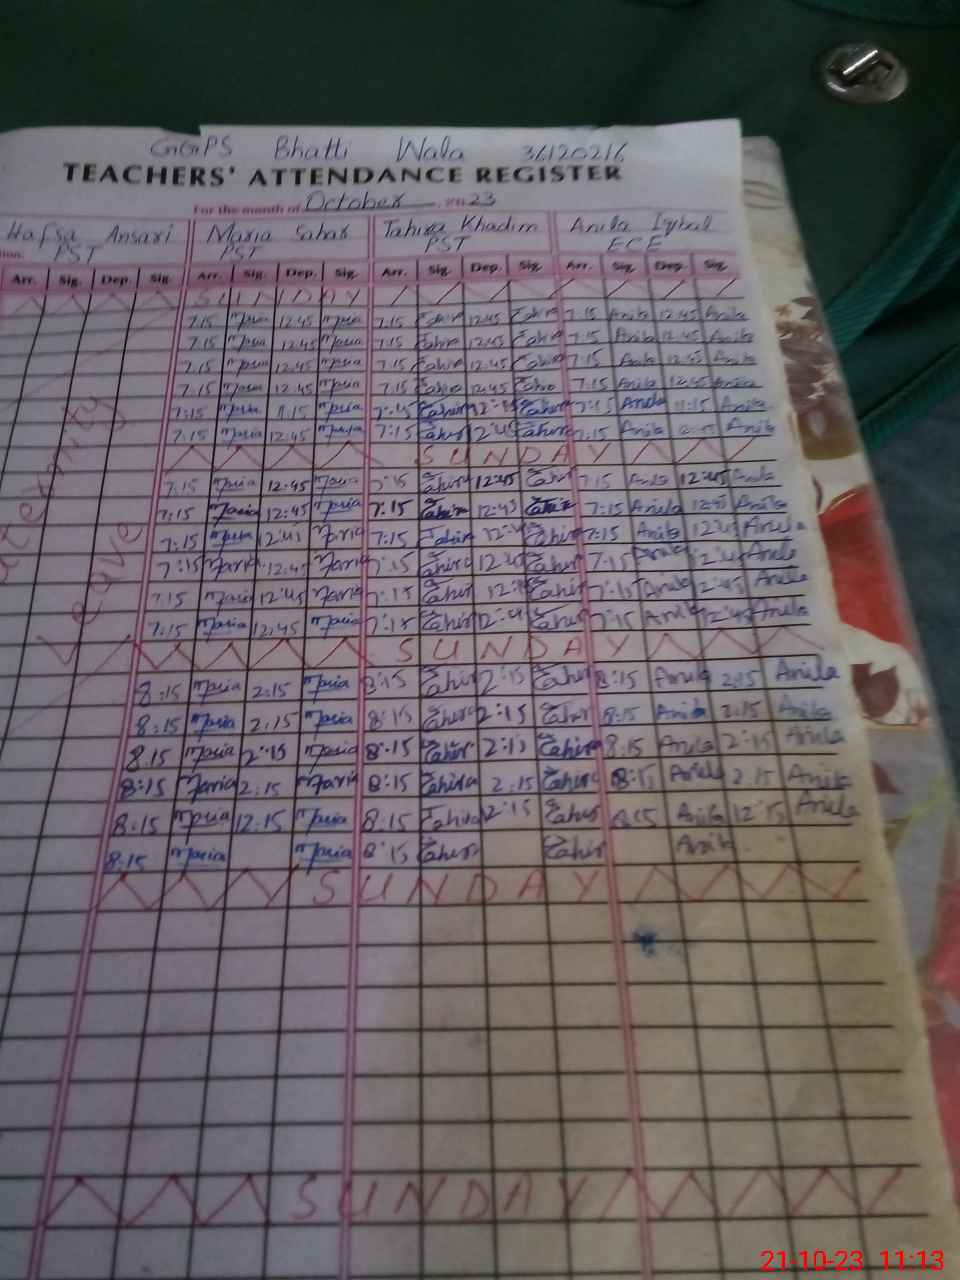 GGPS Bhatti Wala 36120216
TEACHERS' ATTENDANCE REGISTER
For the month of October 2023
Hafsa Ansari Maria Sahar Tahira Khadim Anila Iqbal
PST PST PST ECE
Arr. Sig. Dep. Sig. Arr. Sig. Dep. Sig. Arr. Sig. Dep. Sig. Arr. Sig. Dep. Sig.
SUNDAY
7.15 Maria 12.45 Maria 7.15 Tahira 12.45 Tahira 7.15 Anila 12.45 Anila
7.15 Maria 12.45 Maria 7.15 Tahira 12.45 Tahira 7.15 Anila 12.45 Anila
7.15 Maria 12.45 Maria 7.15 Tahira 12.45 Tahira 7.15 Anila 12.45 Anila
7.15 Maria 12.45 Maria 7.15 Tahira 12.45 Tahira 7.15 Anila 12.45 Anila
7:15 Maria 11.15 Maria Tahira Tahira 7:15 Anila 11:15 Anila
7:15 Maria 12.45 Maria 7:15 Tahira Tahira 7:15 Anila Anila
SUNDAY
7.15 Maria 12:45 Maria 7:15 Tahira 12:45 Tahira 7.15 Anila 12:45 Anila
7:15 Maria 12:45 Maria 7:15 Tahira 12:45 Tahira 7:15 Anila 12:45 Anila
7:15 Maria Maria 7:15 Tahira Tahira 7:15 Anila 12:45 Anila
7:15 Maria 12:45 Maria Tahira 12:45 Tahira 7:15 Anila Anila
7:15 Maria 12:45 Maria 7:15 Tahira Tahira 7:15 Anila 12:45 Anila
7:15 Maria 12:45 Maria 7:15 Tahira Tahira 7:15 Anila 12:45 Anila
Maternity Leave
SUNDAY
8:15 Maria 2:15 Maria 8:15 Tahira 2:15 Tahira 8:15 Anila 2:15 Anila
8:15 Maria 2:15 Maria 8:15 Tahira 2:15 Tahira 8:15 Anila 2:15 Anila
8.15 Maria 2:15 Maria 8:15 Tahira 2:15 Tahira 8:15 Anila 2:15 Anila
8:15 Maria 2:15 Maria 8:15 Tahira 2.15 Tahira 8:15 Anila 2.15 Anila
8:15 Maria 12:15 Maria 8:15 Tahira 2:15 Tahira 8:15 Anila 12:15 Anila
8:15 Maria Maria 8:15 Tahira Tahira Anila
SUNDAY
SUNDAY
21-10-23 11:13